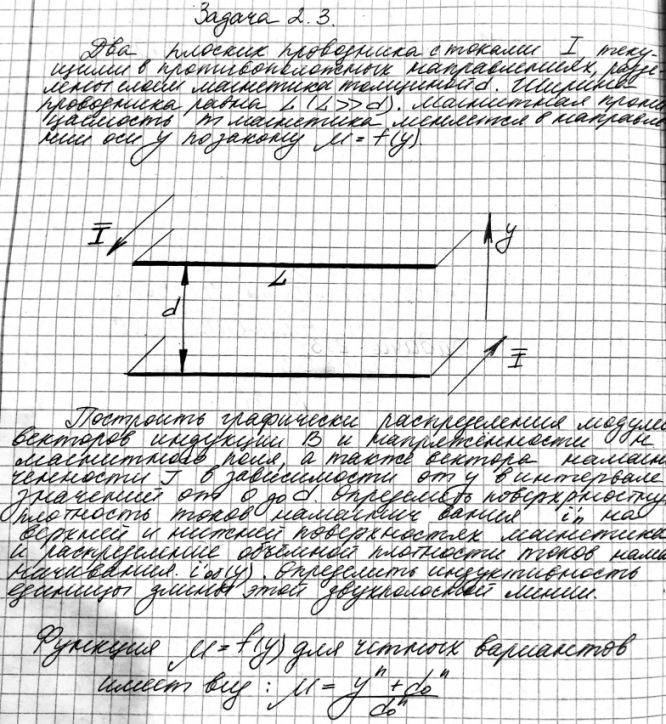 Задача 2.3.
Два плоских проводника с токами I теку-
щими в противоположных направлениях, разде-
лены слоем магнетика толщиной d. Ширина
проводника равна L (L>>d). Магнитная прони
цаемость магнетика меняется в направле
нии оси y по закону μ = f(y).
I
y
L
d
I
Построить графически распределения модулей
векторов индукции B и напряжённости H
магнитного поля, а также вектора намагни
ченности J в зависимости от y в интервале
значений от 0 до d. Определить поверхностную
плотность токов намагничивания i'п на
верхней и нижней поверхностях магнетика
и распределение объёмной плотности токов нама
гничивания i'об(y). Определить индуктивность
единицы длины этой двухполосной линии.
Функция μ = f(y) для чётных вариантов
имеет вид: μ = (yⁿ + d₀ⁿ)/d₀ⁿ